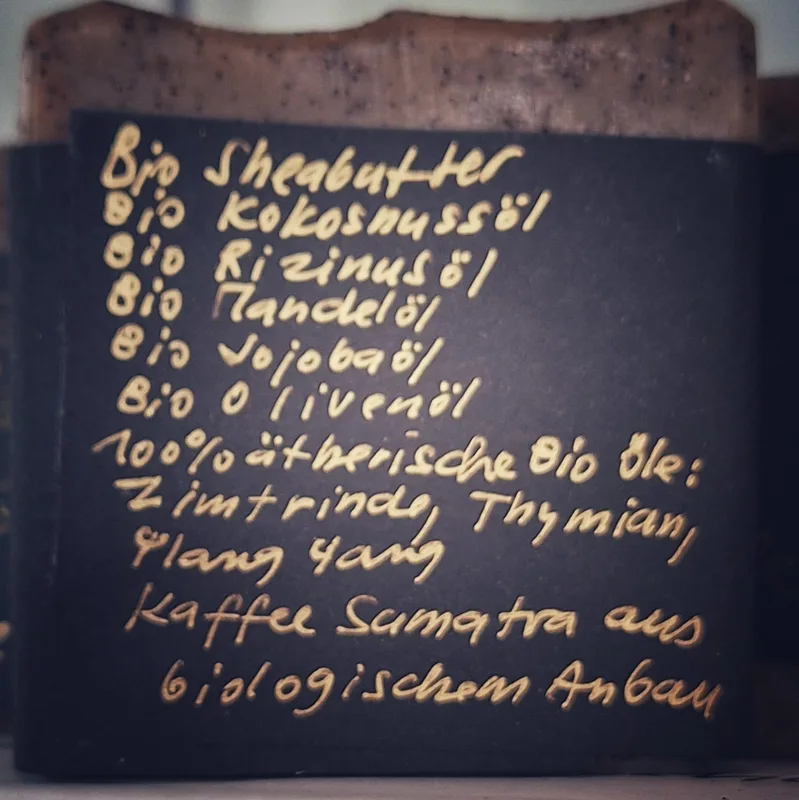 Bio Sheabutter
Bio Kokosnussöl
Bio Rizinusöl
Bio Mandelöl
Bio Jojobaöl
Bio Olivenöl
100% ätherische Bio Öle:
Zimtrinde, Thymian,
Ylang Yang
Kaffee Sumatra aus
biologischem Anbau